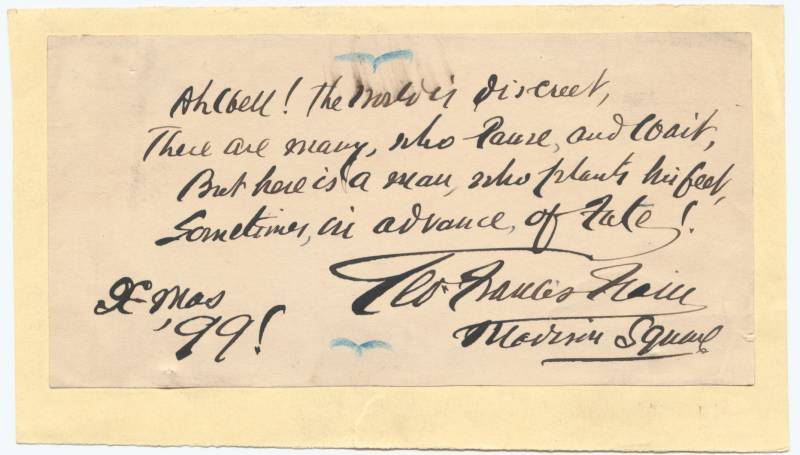 Ah Well! The World is discreet,
There are many, who Pause, and Wait,
But here is a man, who plants his feet,
Sometimes, in advance, of Fate!
Geo. Francis Train
Madison Square
X-mas
'99!